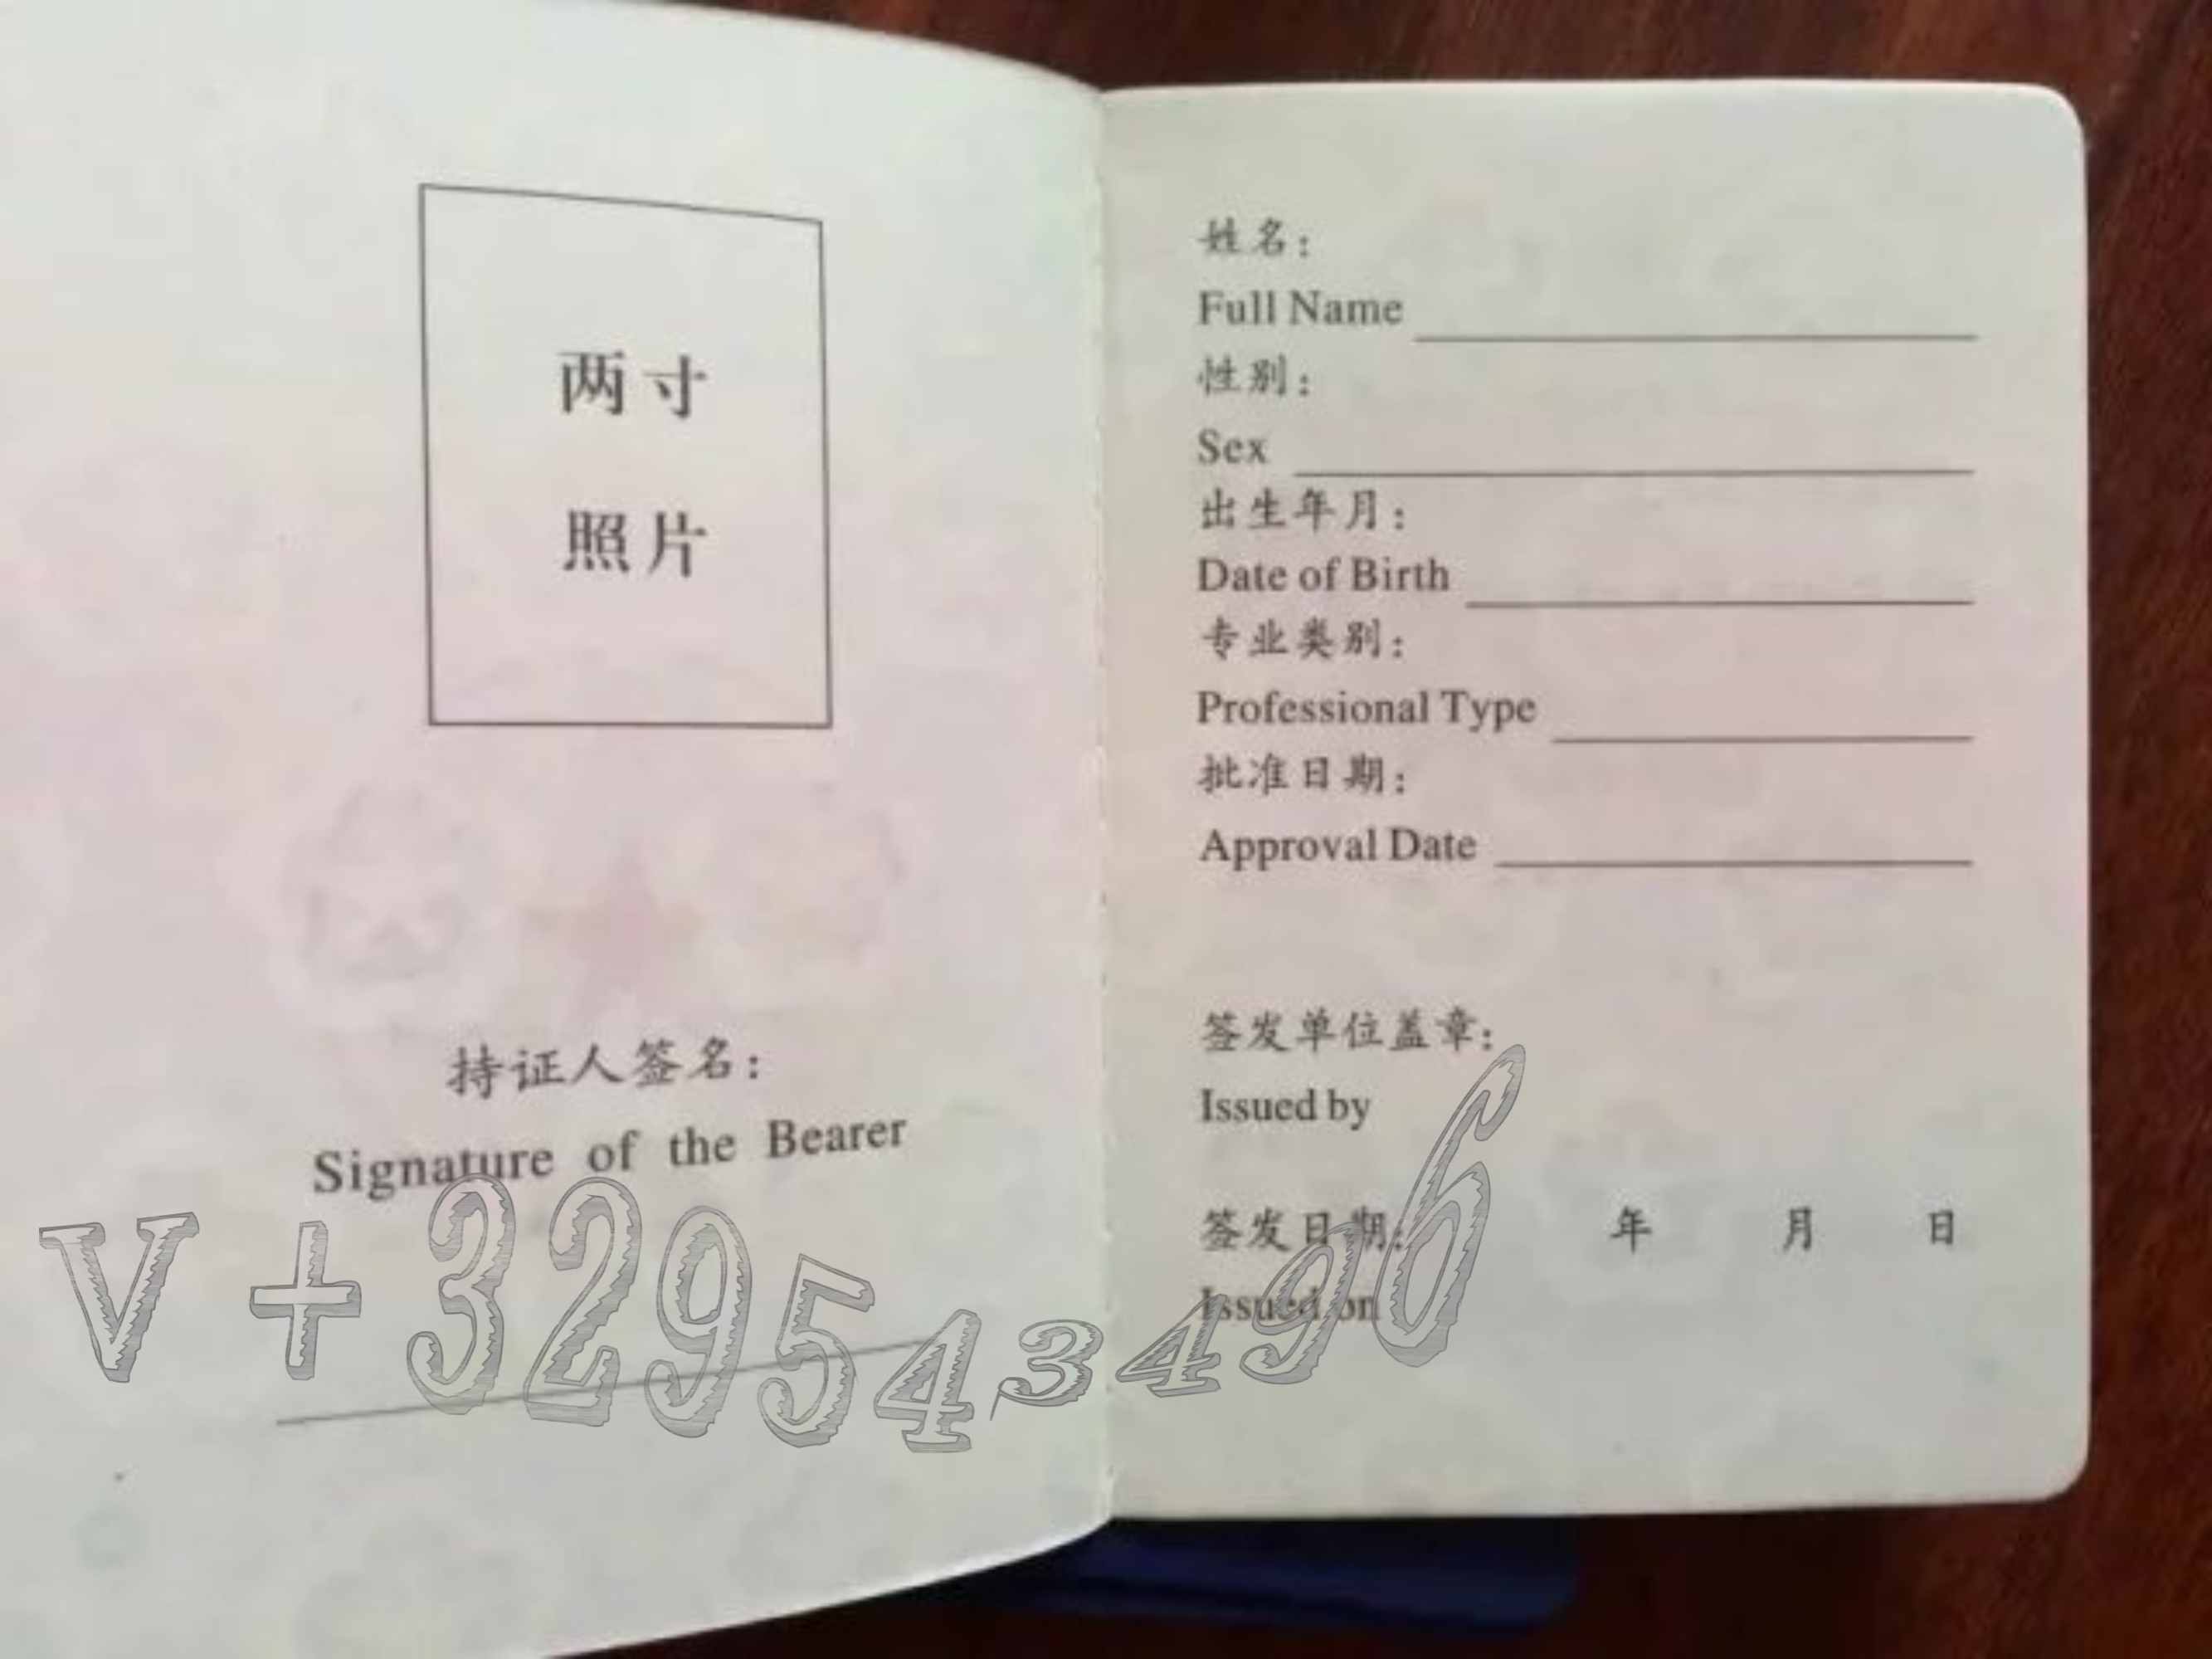 两寸
照片
持证人签名：
Signature of the Bearer
V+3295434996
姓名：
Full Name
性别：
Sex
出生年月：
Date of Birth
专业类别：
Professional Type
批准日期：
Approval Date
签发单位盖章：
Issued by
签发日期： 年 月 日
Issued on